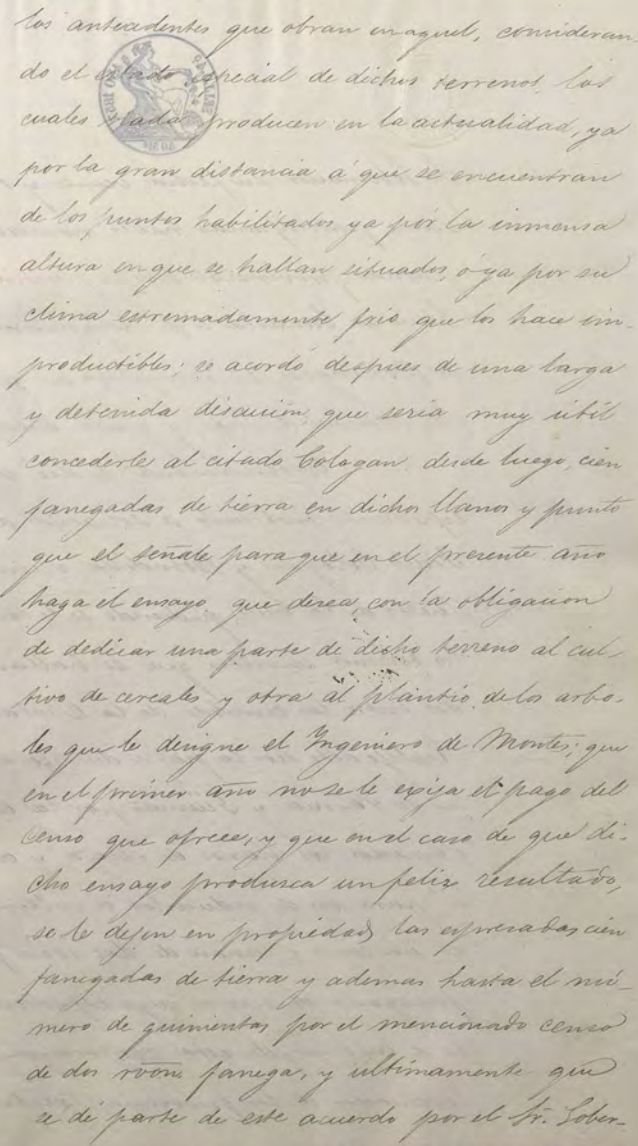 los antecedentes que obran en aquel, consideran-
do el estado especial de dichos terrenos, los
cuales nada producen en la actualidad, ya
por la gran distancia á que se encuentran
de los puntos habilitados ya por la inmensa
altura en que se hallan situados, ó ya por su
clima estremadamente frio que los hace im-
productibles; se acordó despues de una larga
y detenida discusion, que seria muy util
concederle al citado Cologan, desde luego, cien
fanegadas de tierra en dichos Llanos y punto
que el señale para que en el presente año
haga el ensayo, que desea, con la obligacion
de dedicar una parte de dicho terreno al cul-
tivo de cereales y otra al plantio de los arbo-
les que le designe el Yngeniero de Montes; que
en el primer año no se le exija el pago del
censo que ofrece, y que en el caso de que di-
cho ensayo produzca un feliz resultado,
se le dejen en propiedad las espresadas cien
fanegadas de tierra y ademas hasta el nú-
mero de quinientas por el mencionado censo
de dos rvon. fanega, y ultimamente que
se dé parte de este acuerdo por el Sr. Gober-